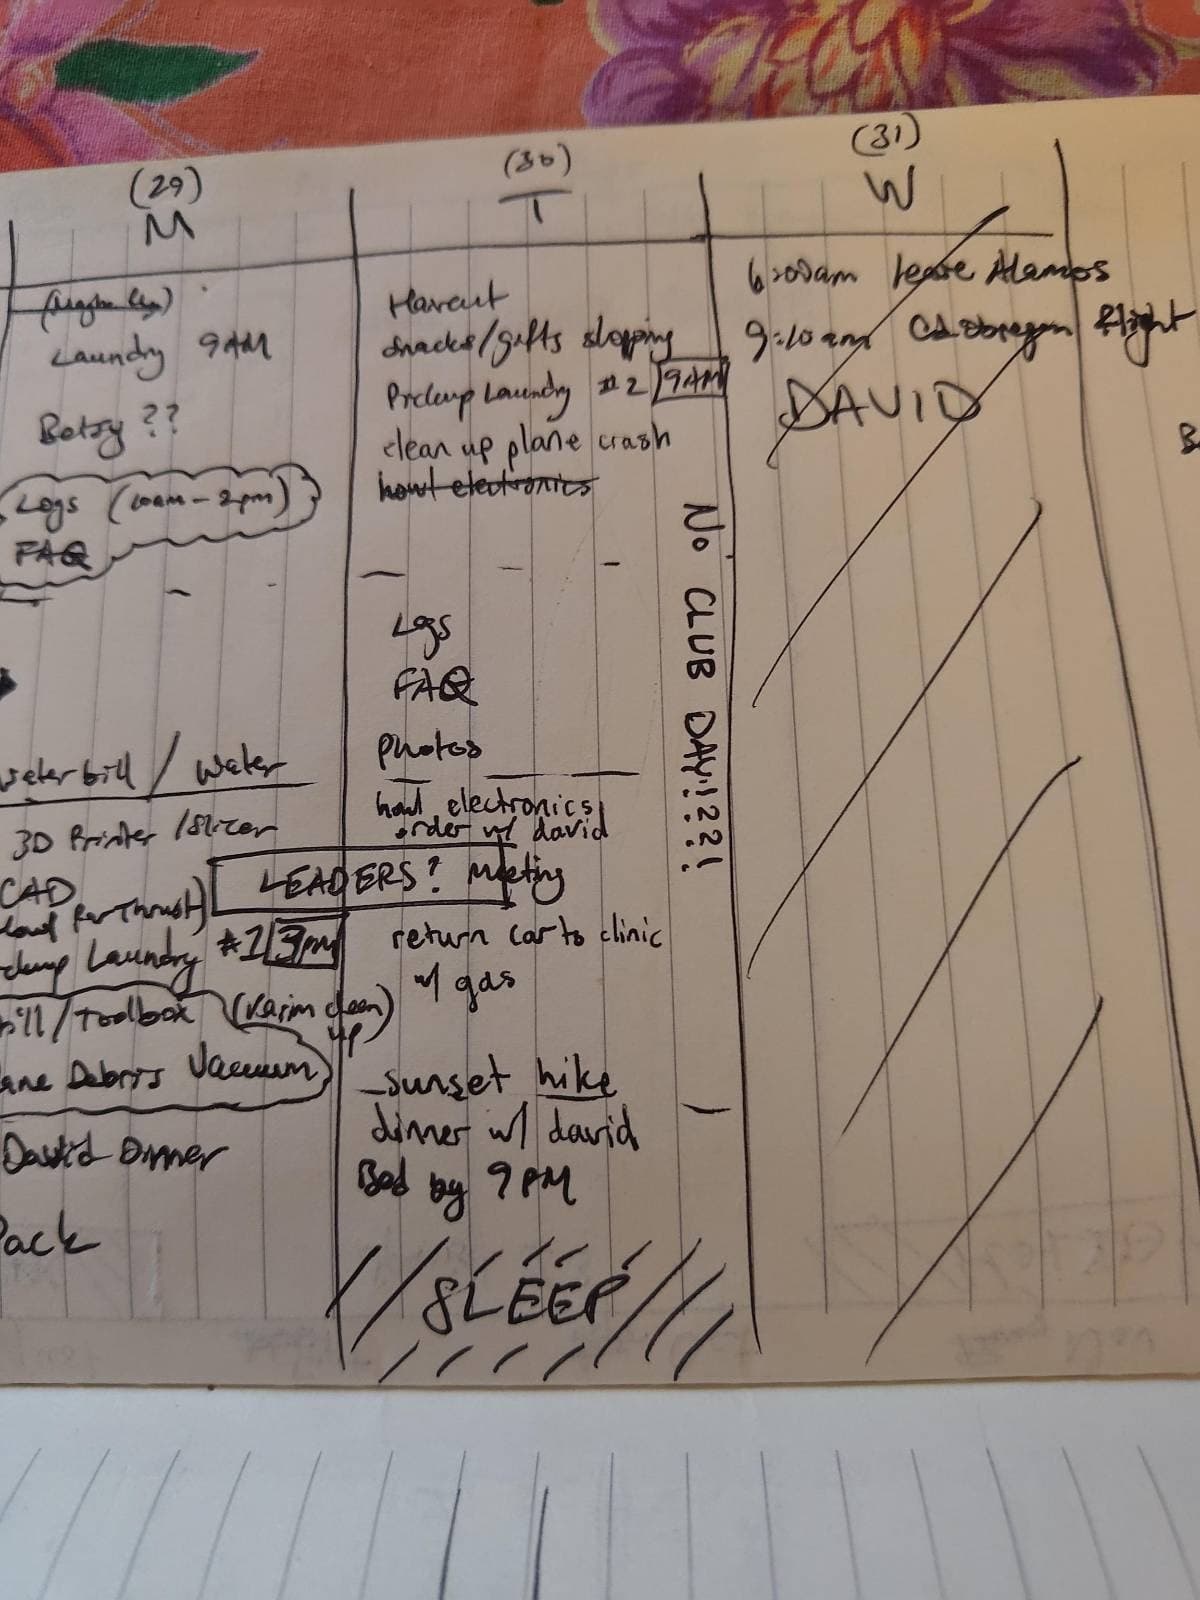 (29)
M
Laundry 9AM
Betsy ??
Logs (10am - 2pm)
FAQ
water bill / Water
3D Printer / Slicer
CAD
Laundry #1 3pm
Toolbox (Karim clean up)
Debris Vacuum
David Dinner
Pack
(30)
T
Harcut
snacks/gifts shopping
Pickup Laundry #2 9AM
clean up plane crash
howt electronics
Logs
FAQ
photos
electronics
order w/ david
LEADERS? Meeting
return car to clinic
w/ gas
sunset hike
dinner w/ david
Bed by 9PM
SLEEP
NO CLUB DAY!!??!
(31)
W
6:00am leave Alamos
9:10am Cd. obregon flight
DAVID